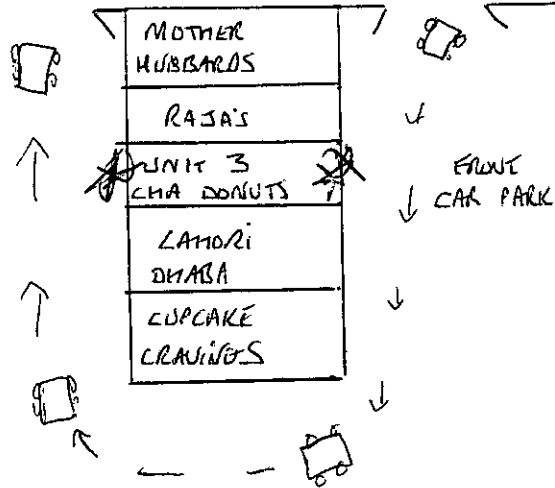 MOTHER
HUBBARDS
RAJA'S
UNIT 3
CHA DONUTS
LAHORI
DHABA
CUPCAKE
CRAVINGS
FRONT
CAR PARK